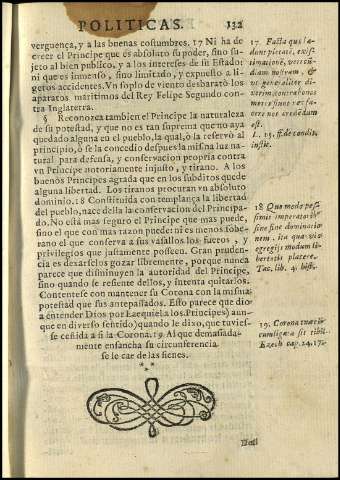 POLITICAS. 132
verguença, y a las buenas costumbres. 17 Ni ha de
creer el Principe que es absoluto su poder, sino su-
jeto al bien publico, y a los intereses de su Estado:
ni que es inmenso, sino limitado, y expuesto a li-
geros accidentes. Vn soplo de viento desbaratò los
aparatos maritimos del Rey Felipe Segundo con-
tra Inglaterra.
§ Reconozca tambien el Principe la naturaleza
de su potestad, y que no es tan suprema que no aya
quedado alguna en el pueblo, la qual, ò la reservò al
principio, ò se la concediò despues la misma luz na-
tural para defensa, y conservacion propria contra
vn Principe notoriamente injusto, y tirano. A los
buenos Principes agrada que en los subditos quede
alguna libertad. Los tiranos procuran vn absoluto
dominio. 18 Constituida con templança la libertad
del pueblo, nace della la conservacion del Principa-
do. No està mas seguro el Principe que mas puede,
sino el que con mas razon puede: ni es menos sobe-
rano el que conserva a sus vasallos los fueros, y
privilegios que justamente posseen. Gran pruden-
cia es dexarselos gozar libremente, porque nunca
parece que disminuyen la autoridad del Principe,
sino quando se resiente dellos, y intenta quitarlos.
Contentese con mantener su Corona con la misma
potestad que sus antepasados. Esto parece que dio
a entender Dios por Ezequiel a los Principes) aun-
que en diverso sentido) quando le dixo, que tuvies-
se ceñida a si la Corona. 19 Al que demasiada-
mente ensancha su circunferencia
se le cae de las sienes.
17 Facta quæ læ-
dunt pietatẽ, exis-
timationẽ, verecũ-
diam nostram, &
ut generaliter di-
xerim, contra bonos
mores fiunt, nec fa-
cere nos credendum
est.
L. 15. ff. de condit.
instit.
18 Quomodo pes-
simis imperatorib⁹
sine fine dominatio-
nem, ita quamvis
egregijs modum li-
bertatis placere.
Tac. lib. 4. hist.
19. Corona tua cir-
cumligata sit tibi.
Ezech. cap. 24. 17.